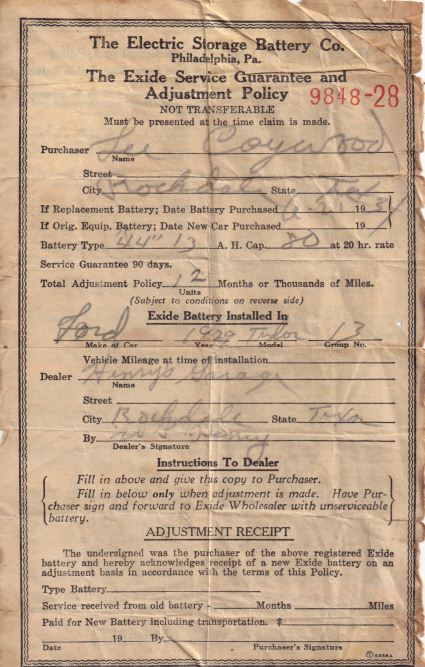 The Electric Storage Battery Co.
Philadelphia, Pa.
The Exide Service Guarantee and
Adjustment Policy
9848-28
NOT TRANSFERABLE
Must be presented at the time claim is made.
Purchaser Lee Coywood
Name
Street
City Rockdale State Tex
If Replacement Battery; Date Battery Purchased 6-21 1934
If Orig. Equip. Battery; Date New Car Purchased 19
Battery Type 44" 13 A. H. Cap. 80 at 20 hr. rate
Service Guarantee 90 days.
Total Adjustment Policy 12 Months or Thousands of Miles.
Units
(Subject to conditions on reverse side)
Exide Battery Installed In
Ford 1929 Tudor 13
Make of Car Year Model Group No.
Vehicle Mileage at time of installation
Dealer Henrys Garage
Name
Street
City Rockdale State Texa
By Henry
Dealer's Signature
Instructions To Dealer
Fill in above and give this copy to Purchaser.
Fill in below only when adjustment is made. Have Pur-
chaser sign and forward to Exide Wholesaler with unserviceable
battery.
ADJUSTMENT RECEIPT
The undersigned was the purchaser of the above registered Exide
battery and hereby acknowledges receipt of a new Exide battery on
an adjustment basis in accordance with the terms of this Policy.
Type Battery
Service received from old battery - Months Miles
Paid for New Battery including transportation. $
19 By
Date Purchaser's Signature